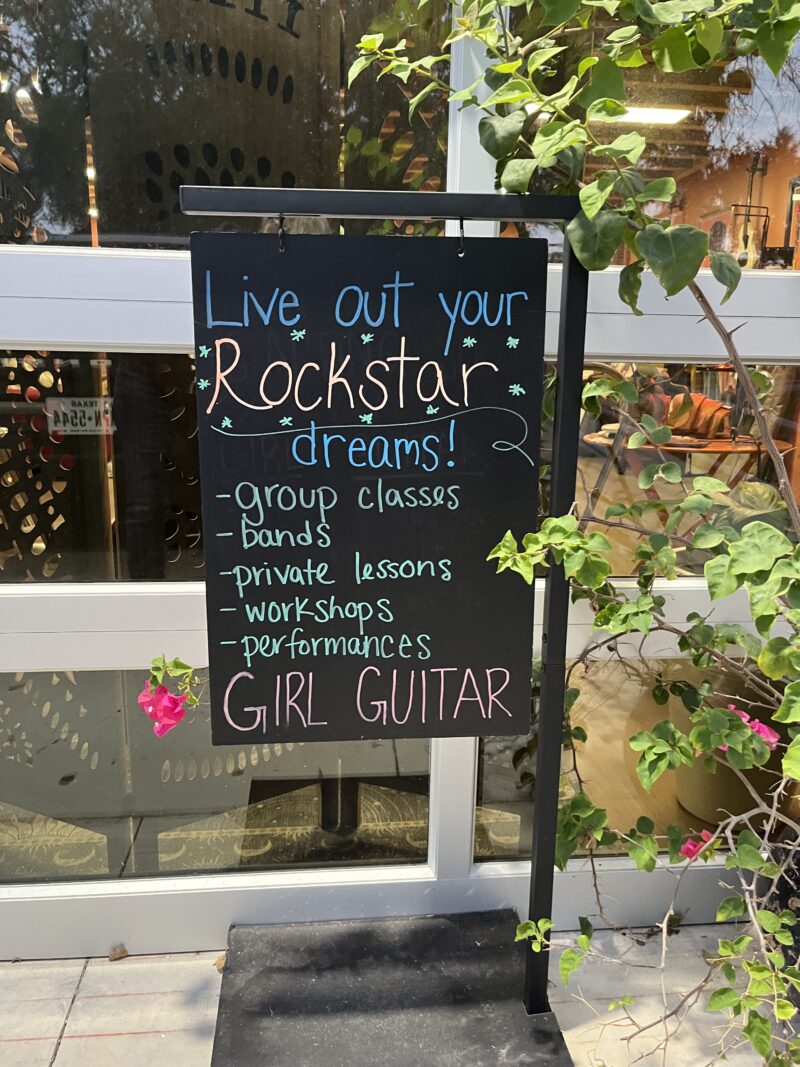 Live out your
Rockstar
dreams!
-group classes
-bands
-private lessons
-workshops
-performances
GIRL GUITAR
TEXAS